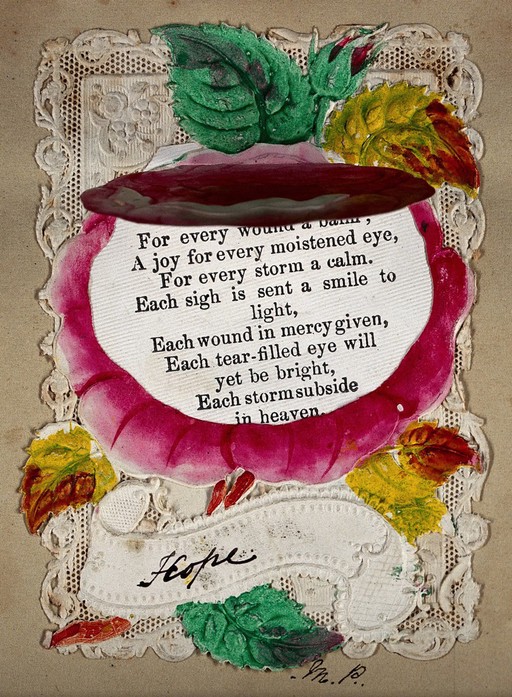 For every wound a balm;
A joy for every moistened eye,
For every storm a calm.
Each sigh is sent a smile to
light,
Each wound in mercy given,
Each tear-filled eye will
yet be bright,
Each storm subside
in heaven.
Hope
M. P.